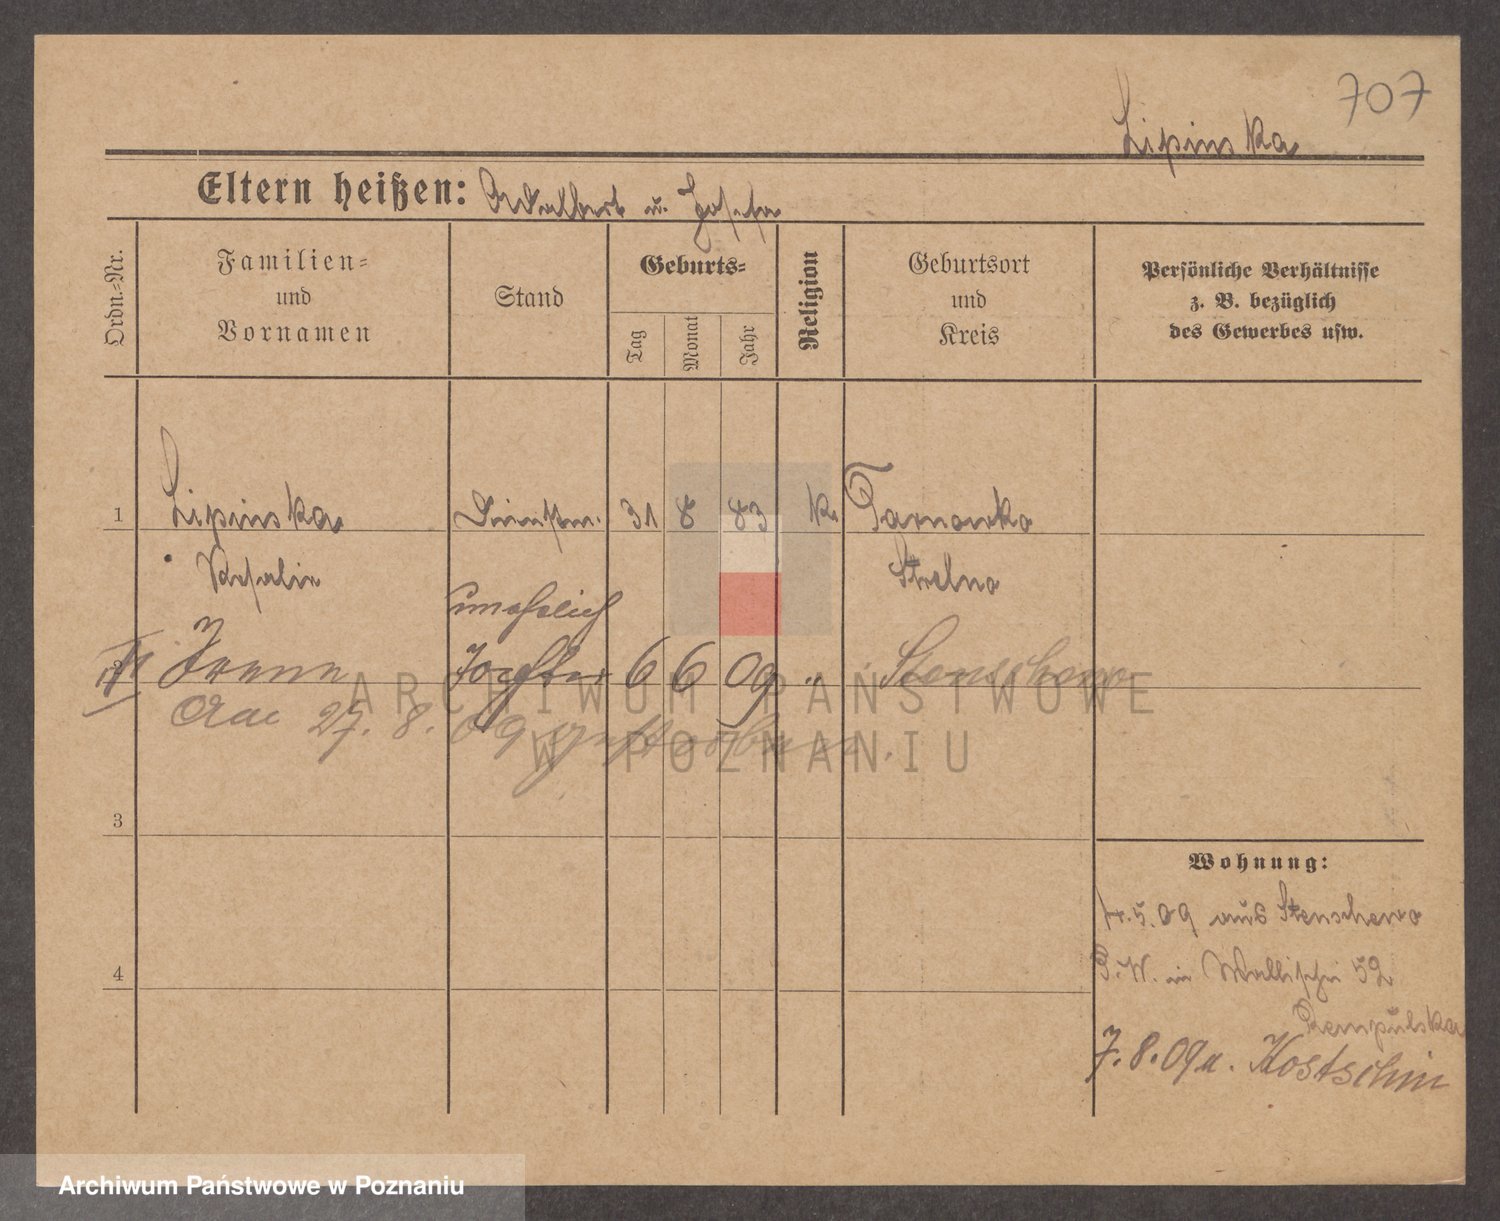 707
Lipinska
Eltern heißen: Adalbert u. Josefa
Ordn.-Nr.
Familien-
und
Vornamen
Stand
Geburts-
Tag
Monat
Jahr
Religion
Geburtsort
und
Kreis
Persönliche Verhältnisse
z. B. bezüglich
des Gewerbes usw.
1 Lipinska Dienstm. 31 8 83 k. Tarnowko
Rosalie Strelno
unehelich
2 II Irene Tochter 6 6 09 " Stenschewo
Am 27. 8. 09 gestorben.
3
4
Wohnung:
5.09 aus Stenschewo
B.W. in Wallischei 52
7.8.09 n. Kostschin
ARCHIWUM PAŃSTWOWE
W POZNANIU
Archiwum Państwowe w Poznaniu